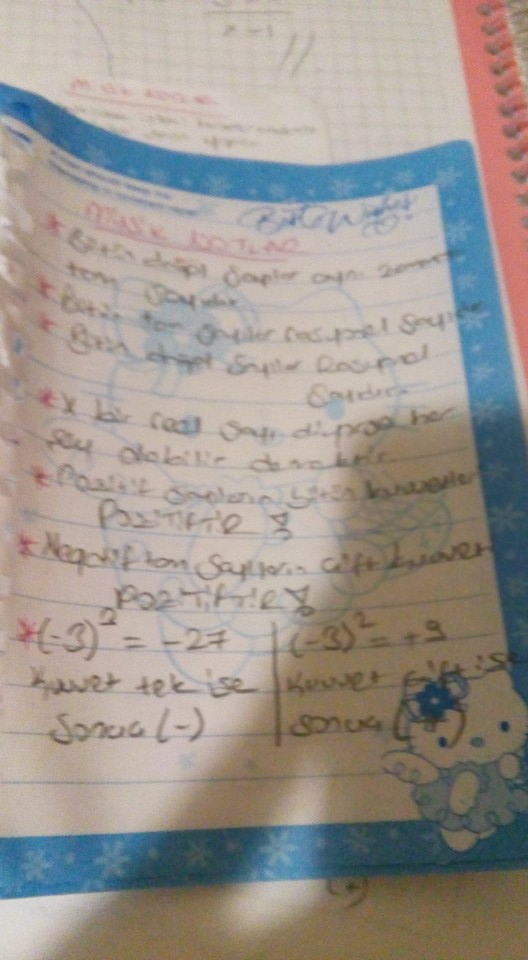 z-1
MİNİK NOTLAR
* Bütün doğal sayılar aynı zamanda
tam sayıdır
* Bütün tam sayılar rasyonel sayıdır
* Bütün doğal sayılar Rasyonel
Sayıdır.
* X bir real sayı diyorsa her
şey olabilir demektir.
* Pozitif sayıların bütün kuvvetleri
POZİTİFTİR
* Negatif tam sayıların çift kuvvet
POZİTİFTİR
* (-3)² = -27 | (-3)² = +9
Kuvvet tek ise | Kuvvet çift ise
sonuç (-) | sonuç (+)